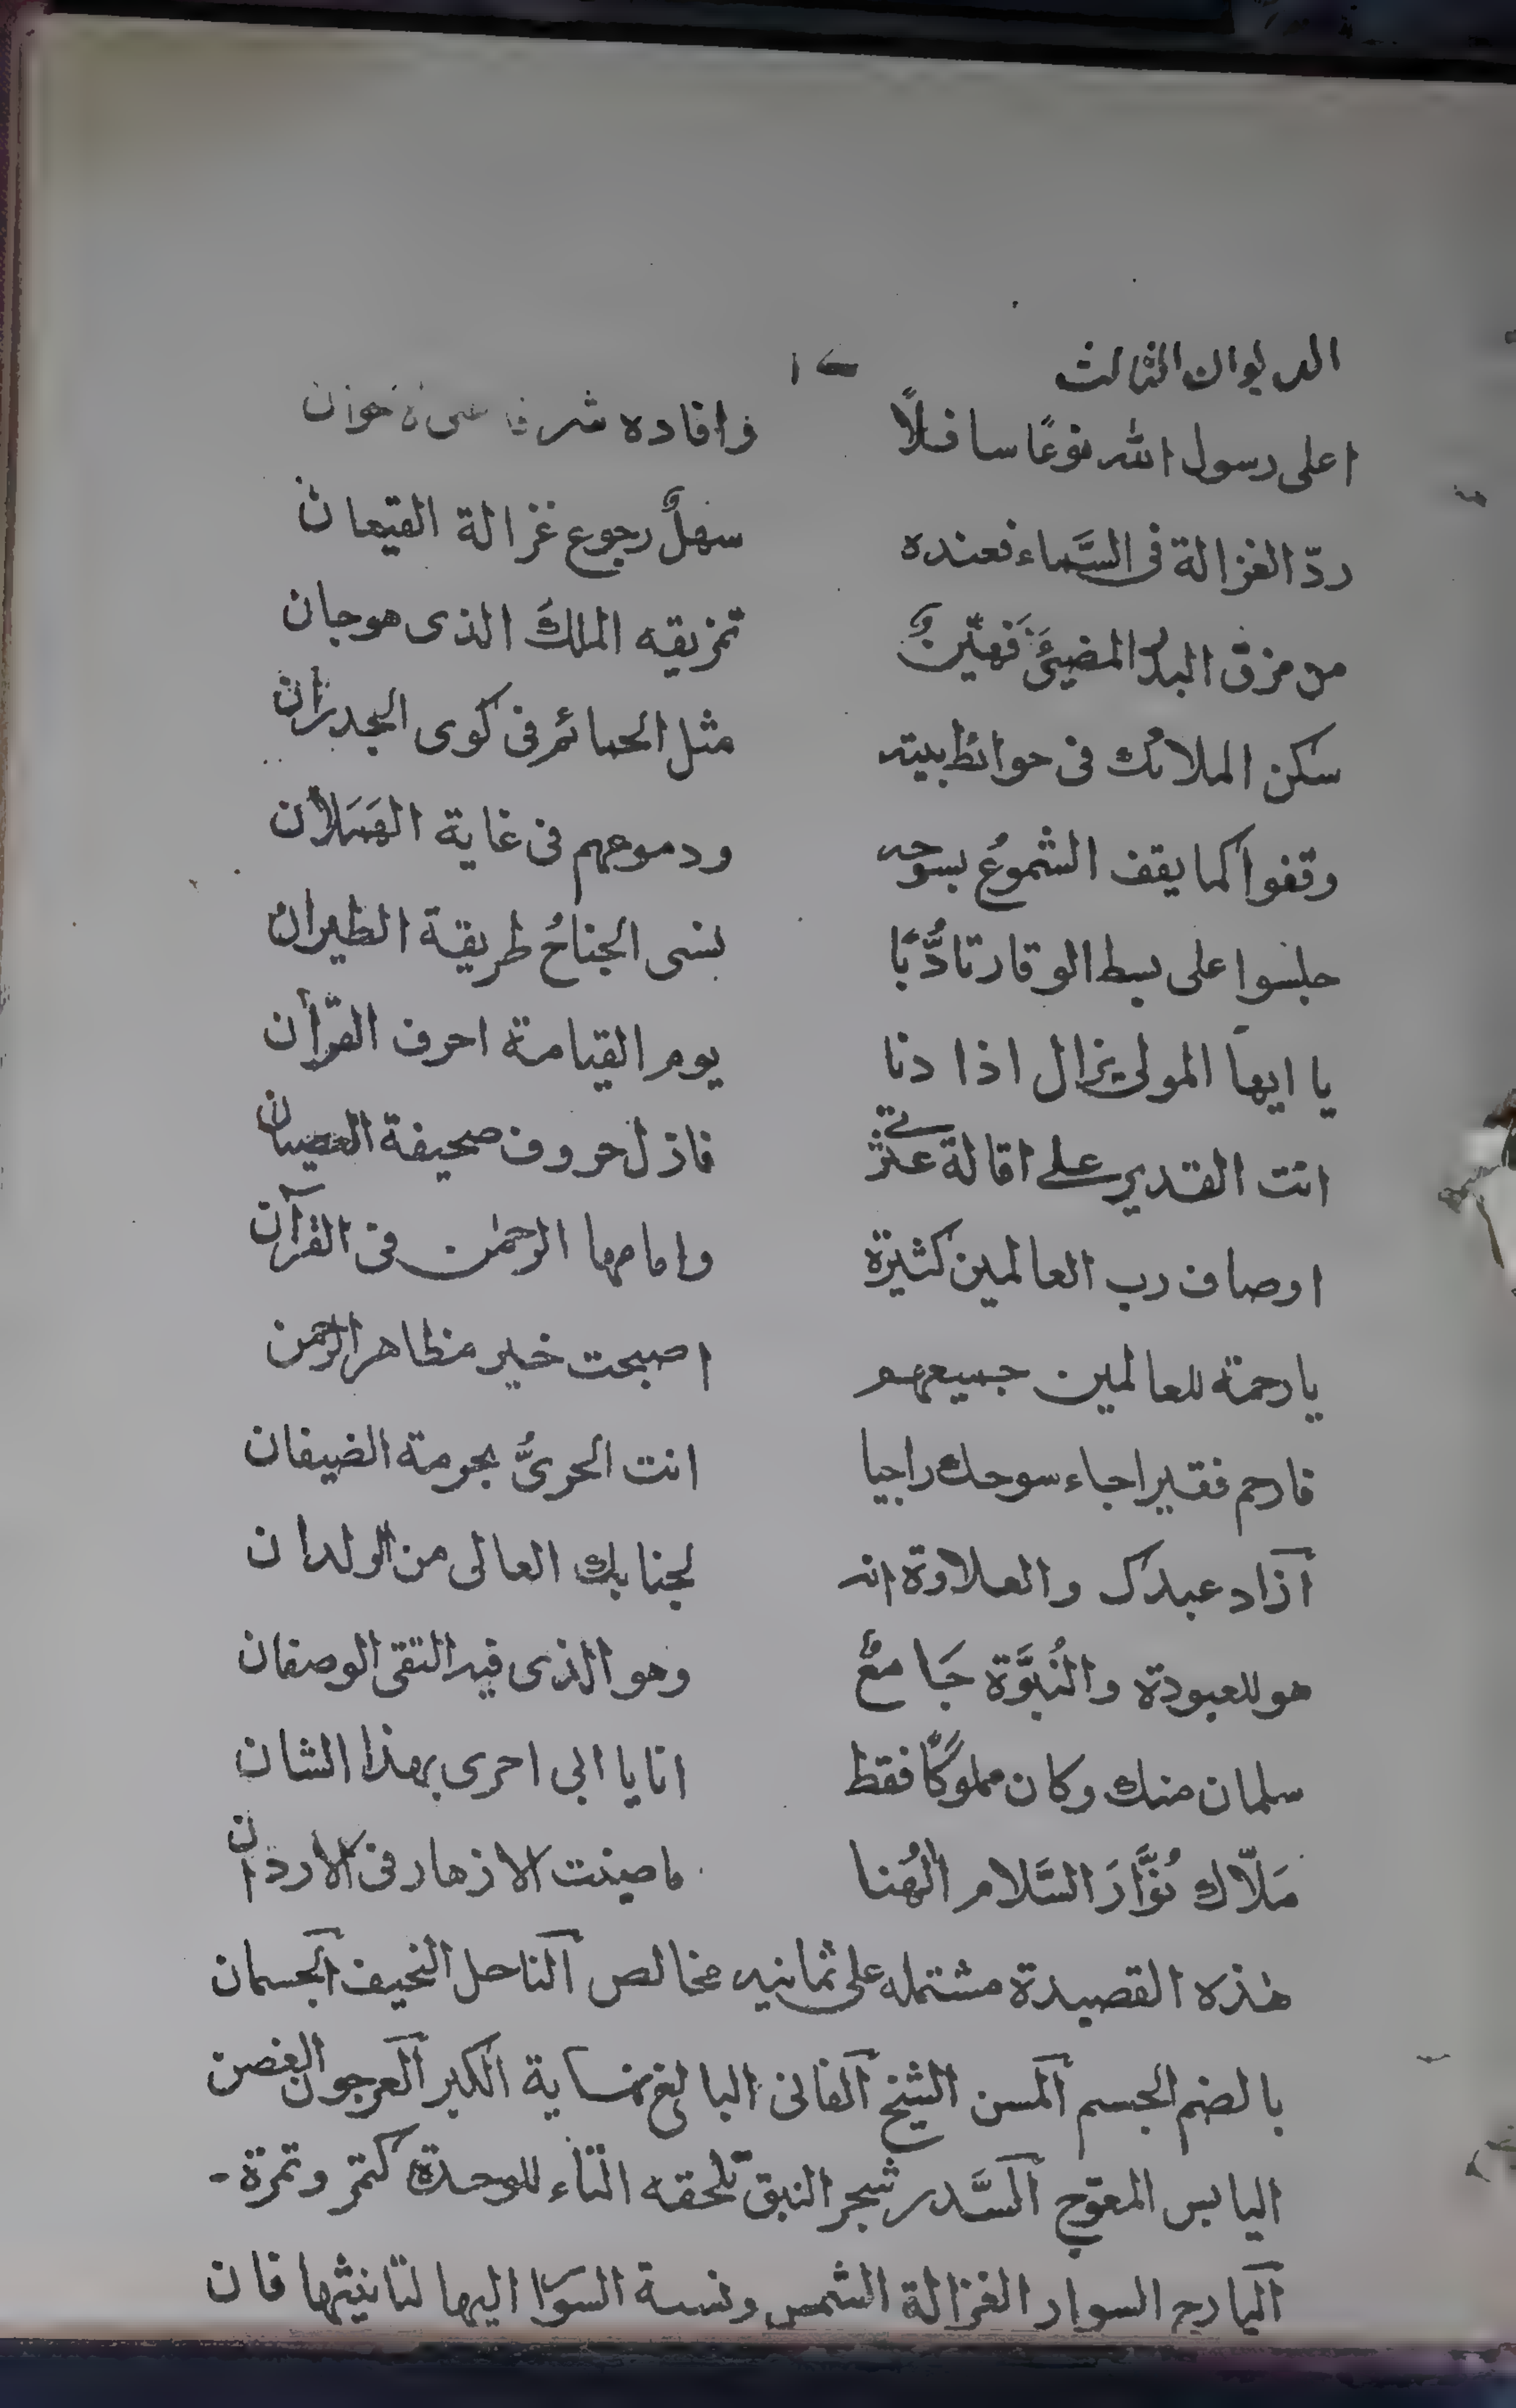 الديوان الثالث
اعلى رسول الله نوعًا سافلًا وافاده شرفا
ردّ الغزالة فى السَّماء فعنده سهلٌ رجوع غزالة القيعان
من مزق البدرُ المضيئَ فهيّنٌ تمزيقه الملكَ الذى هو جان
سكن الملائك فى حوائط بيته مثل الحمائم فى كوى الجدران
وقفوا كما يقف الشموعُ بسوحه ودموعهم فى غاية الهَمَلان
جلسوا على بسط الوقار تادُّبًا نسى الجناحُ طريقة الطيران
يا ايها المولى يزال اذا دنا يوم القيامة احرف القرأن
انت القدير على اقالة عثرتى فازل حروف صحيفة العصيان
اوصاف رب العالمين كثيرة وامامها الرحمٰن فى القرآن
يا رحمة للعالمين جميعهم اصبحت خير مظاهر الرحمن
فارحم فقيرا جاء سوحك راجيا انت الحرىُّ بحرمة الضيفان
آزاد عبدك والعلاوة انه لجنابك العالى من الولدان
هو للعبودة والنُبوَّة جَامعٌ وهو الذى فيه التقى الوصفان
سلمان منك وكان مملوكًا فقط انا يا ابى احرى بهذا الشان
صَلّاك نُوَّارَ السَّلام الٰهُنا ما صينت الازهار فى الاردان
هٰذه القصيدة مشتمله على ثمانيه مخالص الناحل النحيف الجسمان
بالضم الجسم المسن الشيخ الفانى البالغ نهاية الكبر العرجون الغصن
اليابس المعوّج السَّدر شجر النبق تلحقه التاء للوحدة كتمر وتمرة -
اليارج السوار الغزالة الشمس ونسبة السوا اليها لتانيثها فان